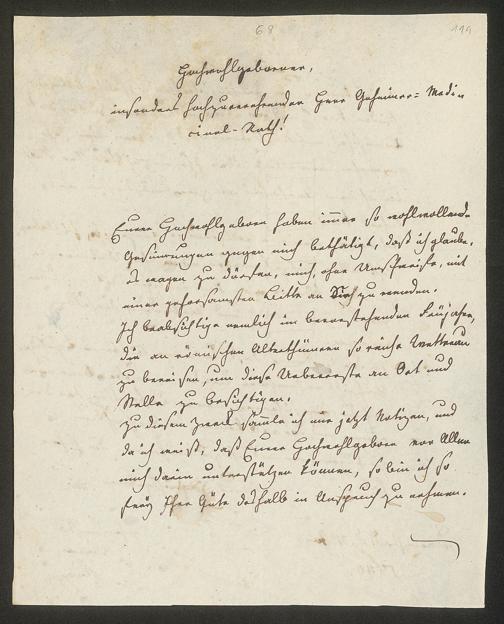 68
119
Hochwohlgeborener,
insonders hochzuverehrender Herr Geheimer= Medi-
cinal-Rath!
Euer Hochwohlgeboren haben immer so wohlwollende
Gesinnungen gegen mich bethätigt, daß ich glaube,
es wagen zu dürfen, mich, ohne Umschweife, mit
einer gehorsamsten Bitte an Sie zu wenden.
Ich beabsichtige nemlich im bevorstehenden Frühjahre,
die an römischen Alterthümern so reiche Wetterau
zu bereisen, um diese Ueberreste an Ort und
Stelle zu besichtigen.
Zu diesem Zweck sammle ich mir jetzt Notizen, und
da ich weiß, daß Euer Hochwohlgeboren vor Allen
mich darin unterstützen können, so bin ich so
frey Ihre Güte deshalb in Anspruch zu nehmen.